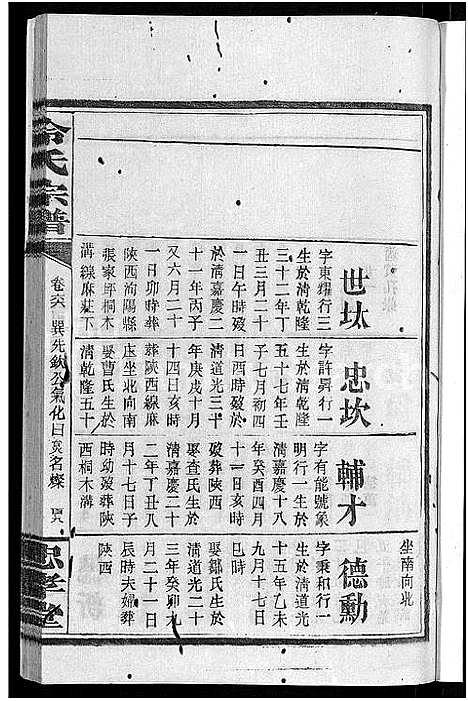 坐南向北
世㘰
字東耀行三
生於清乾隆
三十二年丁
丑三月二十
一日午時歿
於清嘉慶二
十一年丙子
又六月二十
一日卯時葬
陝西洵陽縣
張家坪桐木
溝線麻莊下
忠坎
字許昇行一
生於清乾隆
五十七年壬
子七月初四
日酉時歿於
清道光三十
年庚戌十月
十四日亥時
葬陝西線麻
庄坐北向南
娶曹氏生於
清乾隆五十
輔才
字有能號象
明行一生於
清嘉慶十八
年癸酉四月
十一日亥時
歿葬陝西
娶查氏生於
清嘉慶二十
二年丁丑八
月十七日子
時歿葬陝
西桐木溝
德勳
字秉和行一
生於清道光
十五年乙未
九月十七日
巳時
娶鄒氏生於
清道光二十
三年癸卯九
月二十一日
辰時夫婦葬
陝西
冷氏宗譜
卷六 巽先欽公氣化曰炱名燦
忠孝堂